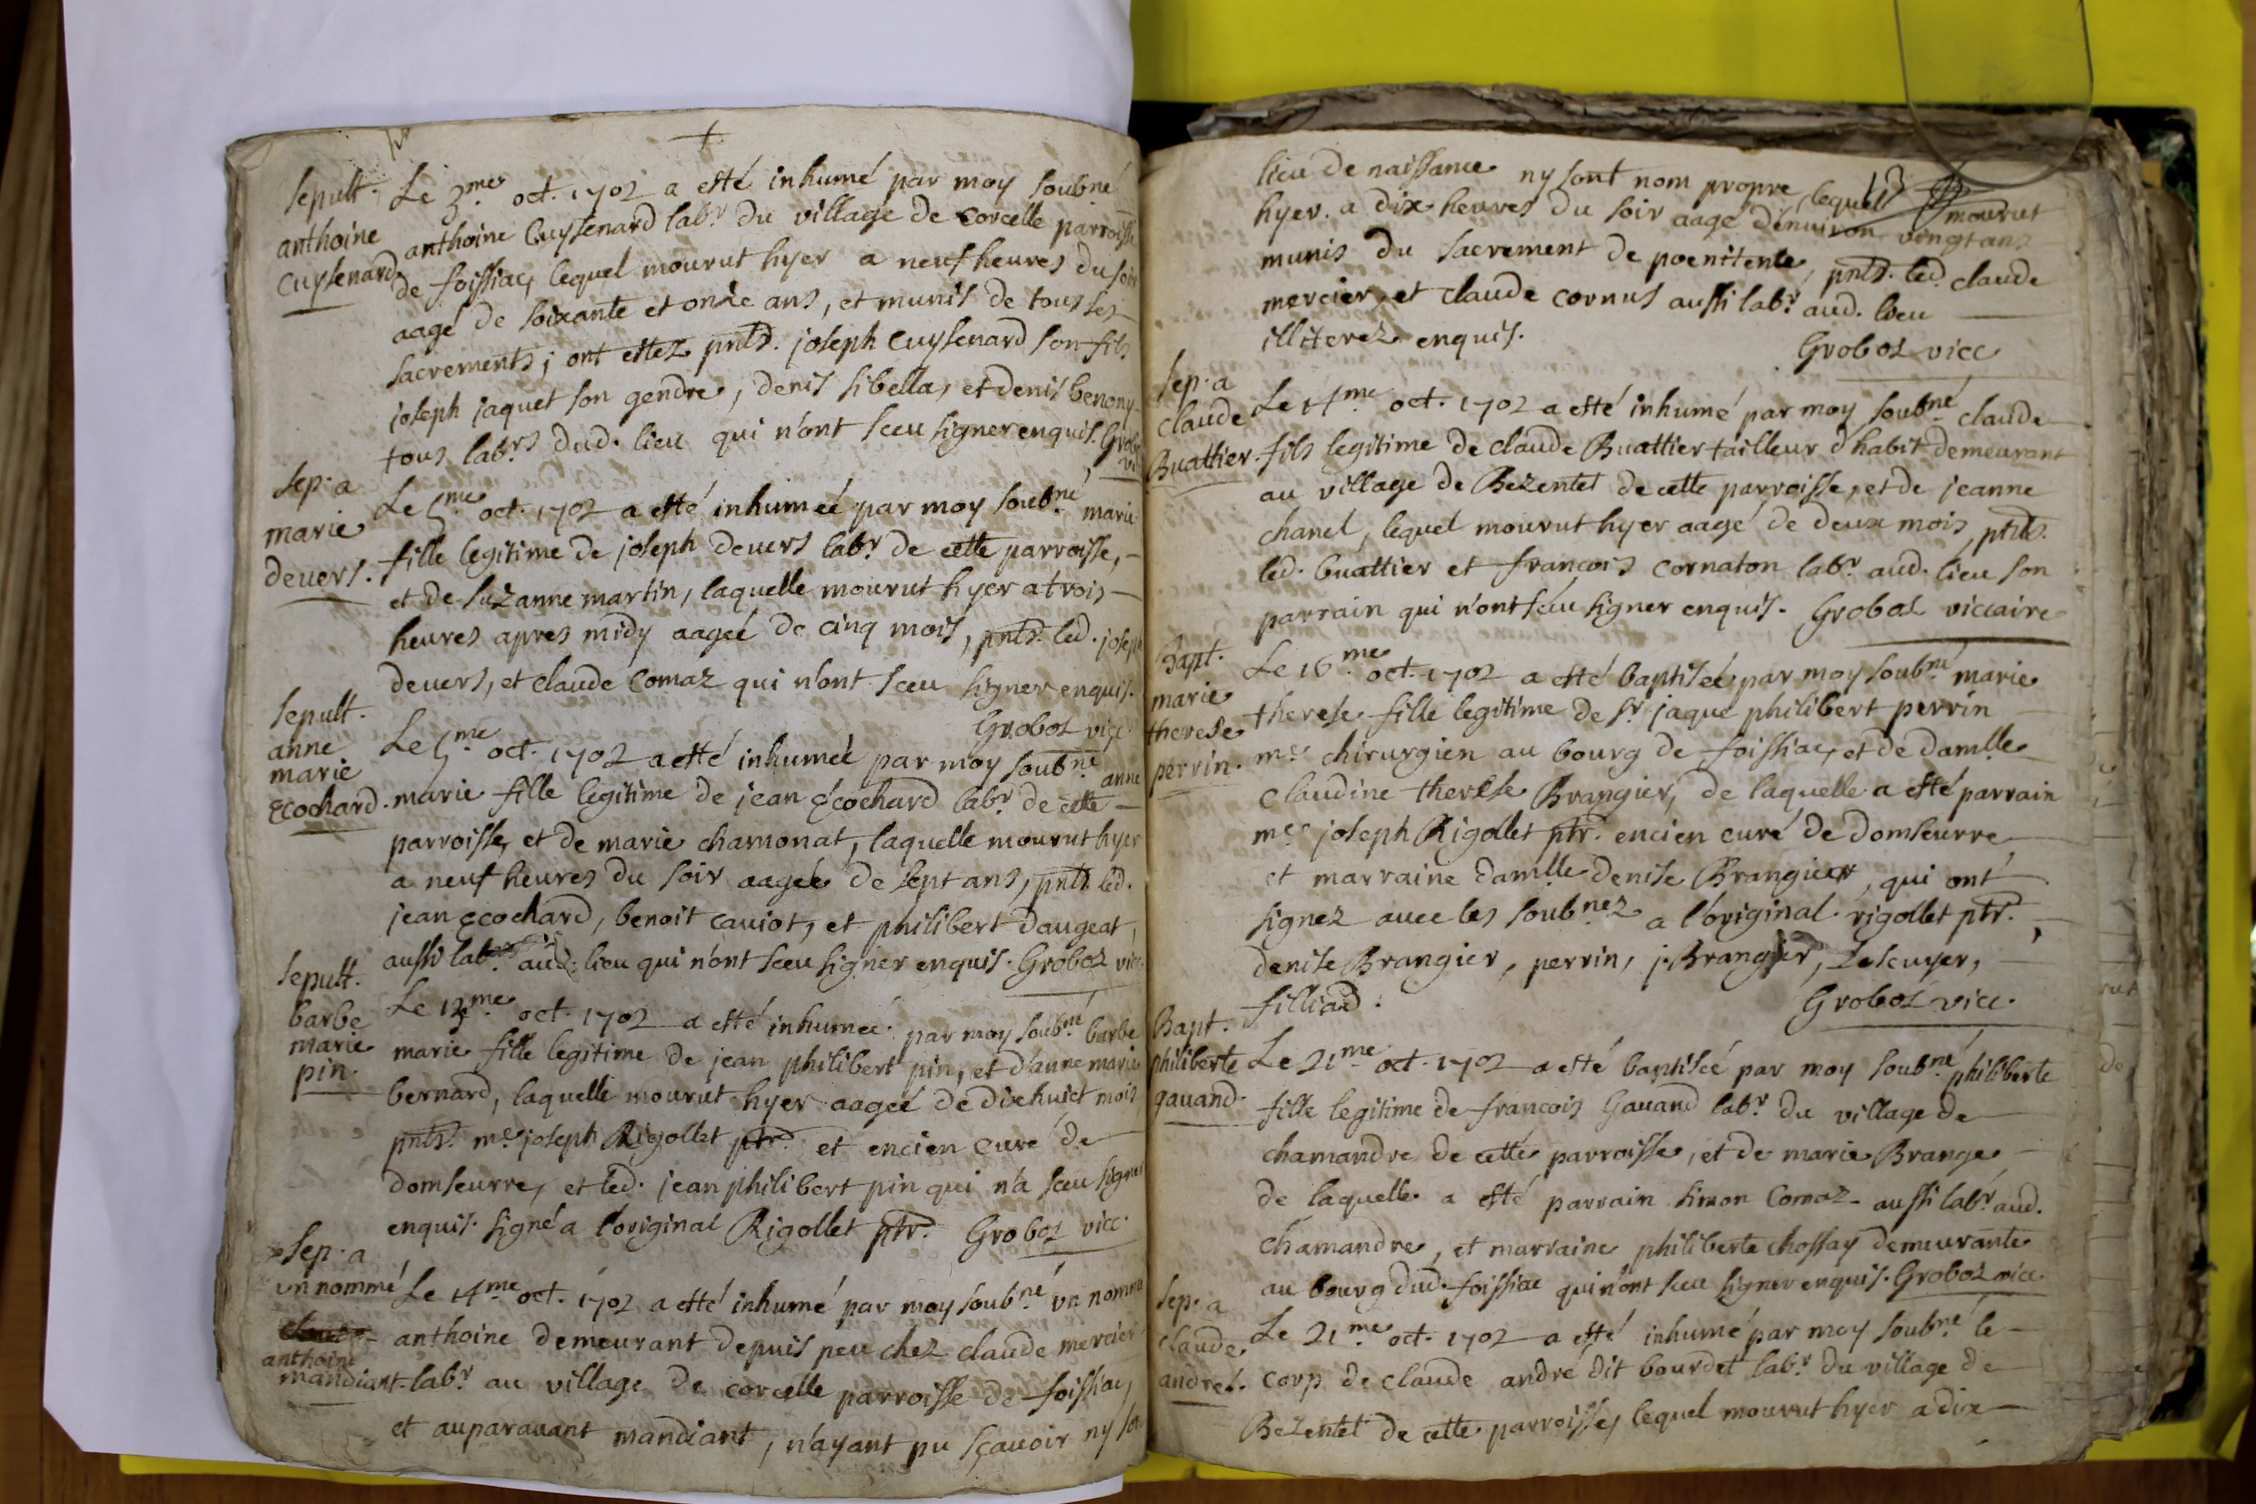 sepult.
anthoine
Cuysenard.
Le 3.me oct. 1702 a esté inhumé par moy soub.né
anthoine Cuysenard lab.r du village de corcelle parroisse
de foissiac, lequel mourut hyer a neuf heures du soir
aagé de soixante et onze ans, et munis de tous ses
sacrements; ont estez pnts. joseph Cuysenard son fils
joseph jaquet son gendre, denis sibella, et denis benony
tous lab.rs dud. lieu qui n'ont sceu signer enquis. Groboz
vic
sep. a
marie
devers.
Le 5.me oct. 1702 a esté inhumeé par moy soub.né marie
fille legitime de joseph devers lab.r de cette parroisse,
et de suzanne martin, laquelle mourut hyer a trois
heures apres midy aageé de cinq mois, pnts. led. joseph
devers, et claude Comaz qui n'ont sceu signer enquis.
Groboz vicc
sepult.
anne
marie
Ecochard.
Le 5.me oct. 1702 a esté inhumeé par moy soub.né anne
marie fille legitime de jean Ecochard lab.r de cette
parroisse, et de marie chamonat, laquelle mourut hyer
a neuf heures du soir aageé de sept ans, pnts led.
jean Ecochard, benoit caviot, et philibert daugeat,
aussi lab.rs aud. lieu qui n'ont sceu signer enquis. Groboz vicc
sepult.
barbe
marie
pin.
Le 13.me oct. 1702 a esté inhumeé par moy soub.né barbe
marie fille legitime de jean philibert pin, et d'anne marie
bernard, laquelle mourut hyer aageé de dixhuict mois
pnts. m.e joseph Rigollet ptr. et encien curé de
domseurre, et led. jean philibert pin qui n'a sceu signer
enquis. signé a l'original Rigollet ptr. Groboz vicc.
sep. a
un nommé
anthoine
mandiant
Le 14.me oct. 1702 a esté inhumé par moy soub.né un nommé
anthoine demeurant depuis peu chez claude mercier
lab.r au village de corcelle parroisse de foissiac,
et auparavant mandiant, n'ayant pu sçavoir ny son
lieu de naissance ny sont nom propre, lequel mourut
hyer a dix heures du soir aagé d'enuiron vingt ans
munis du sacrement de poenitence, pnts. led. claude
mercier, et claude cornus aussi lab.r aud. lieu
illiterez enquis.
Groboz vicc
sep. a
claude
Buattier.
Le 14.me oct. 1702 a esté inhumé par moy soub.né claude
fils legitime de claude Buattier tailleur d'habit demeurant
au village de Bezentet de cette parroisse, et de jeanne
chanel, lequel mourut hyer aagé de deux mois, pnts.
led. buattier et francois cornaton lab.r aud. lieu son
parrain qui n'ont sceu signer enquis. Groboz viccaire
Bapt.
marie
therese
perrin.
Le 16.me oct. 1702 a esté baptiseé par moy soub.né marie
therese fille legitime de s.r jaque philibert perrin
m.e chirurgien au bourg de foissiac, et de dam.lle
Claudine therese Brangier, de laquelle a esté parrain
m.e joseph Rigollet ptr. encien curé de domseurre
et marraine dam.lle denise Brangier, qui ont
signez avec les soub.nez a l'original. rigollet ptr.,
denise Brangier, perrin, j. Brangier, Lescuyer,
filliard.
Groboz vicc.
Bapt.
philiberte
gavand.
Le 21.me oct. 1702 a esté baptiseé par moy soub.né philiberte
fille legitime de francois Gavand lab.r du village de
chamandre de cette parroisse, et de marie Brange
de laquelle a esté parrain simon Comaz aussi lab.r aud.
chamandre, et marraine philiberte chossay demeurante
au bourg dud. foissiac qui n'ont sceu signer enquis. Groboz vicc.
sep. a
claude
andre.
Le 21.me oct. 1702 a esté inhumé par moy soub.né le
corp de claude andre dit bourdet lab.r du village de
Bezentet de cette parroisse, lequel mourut hyer a dix